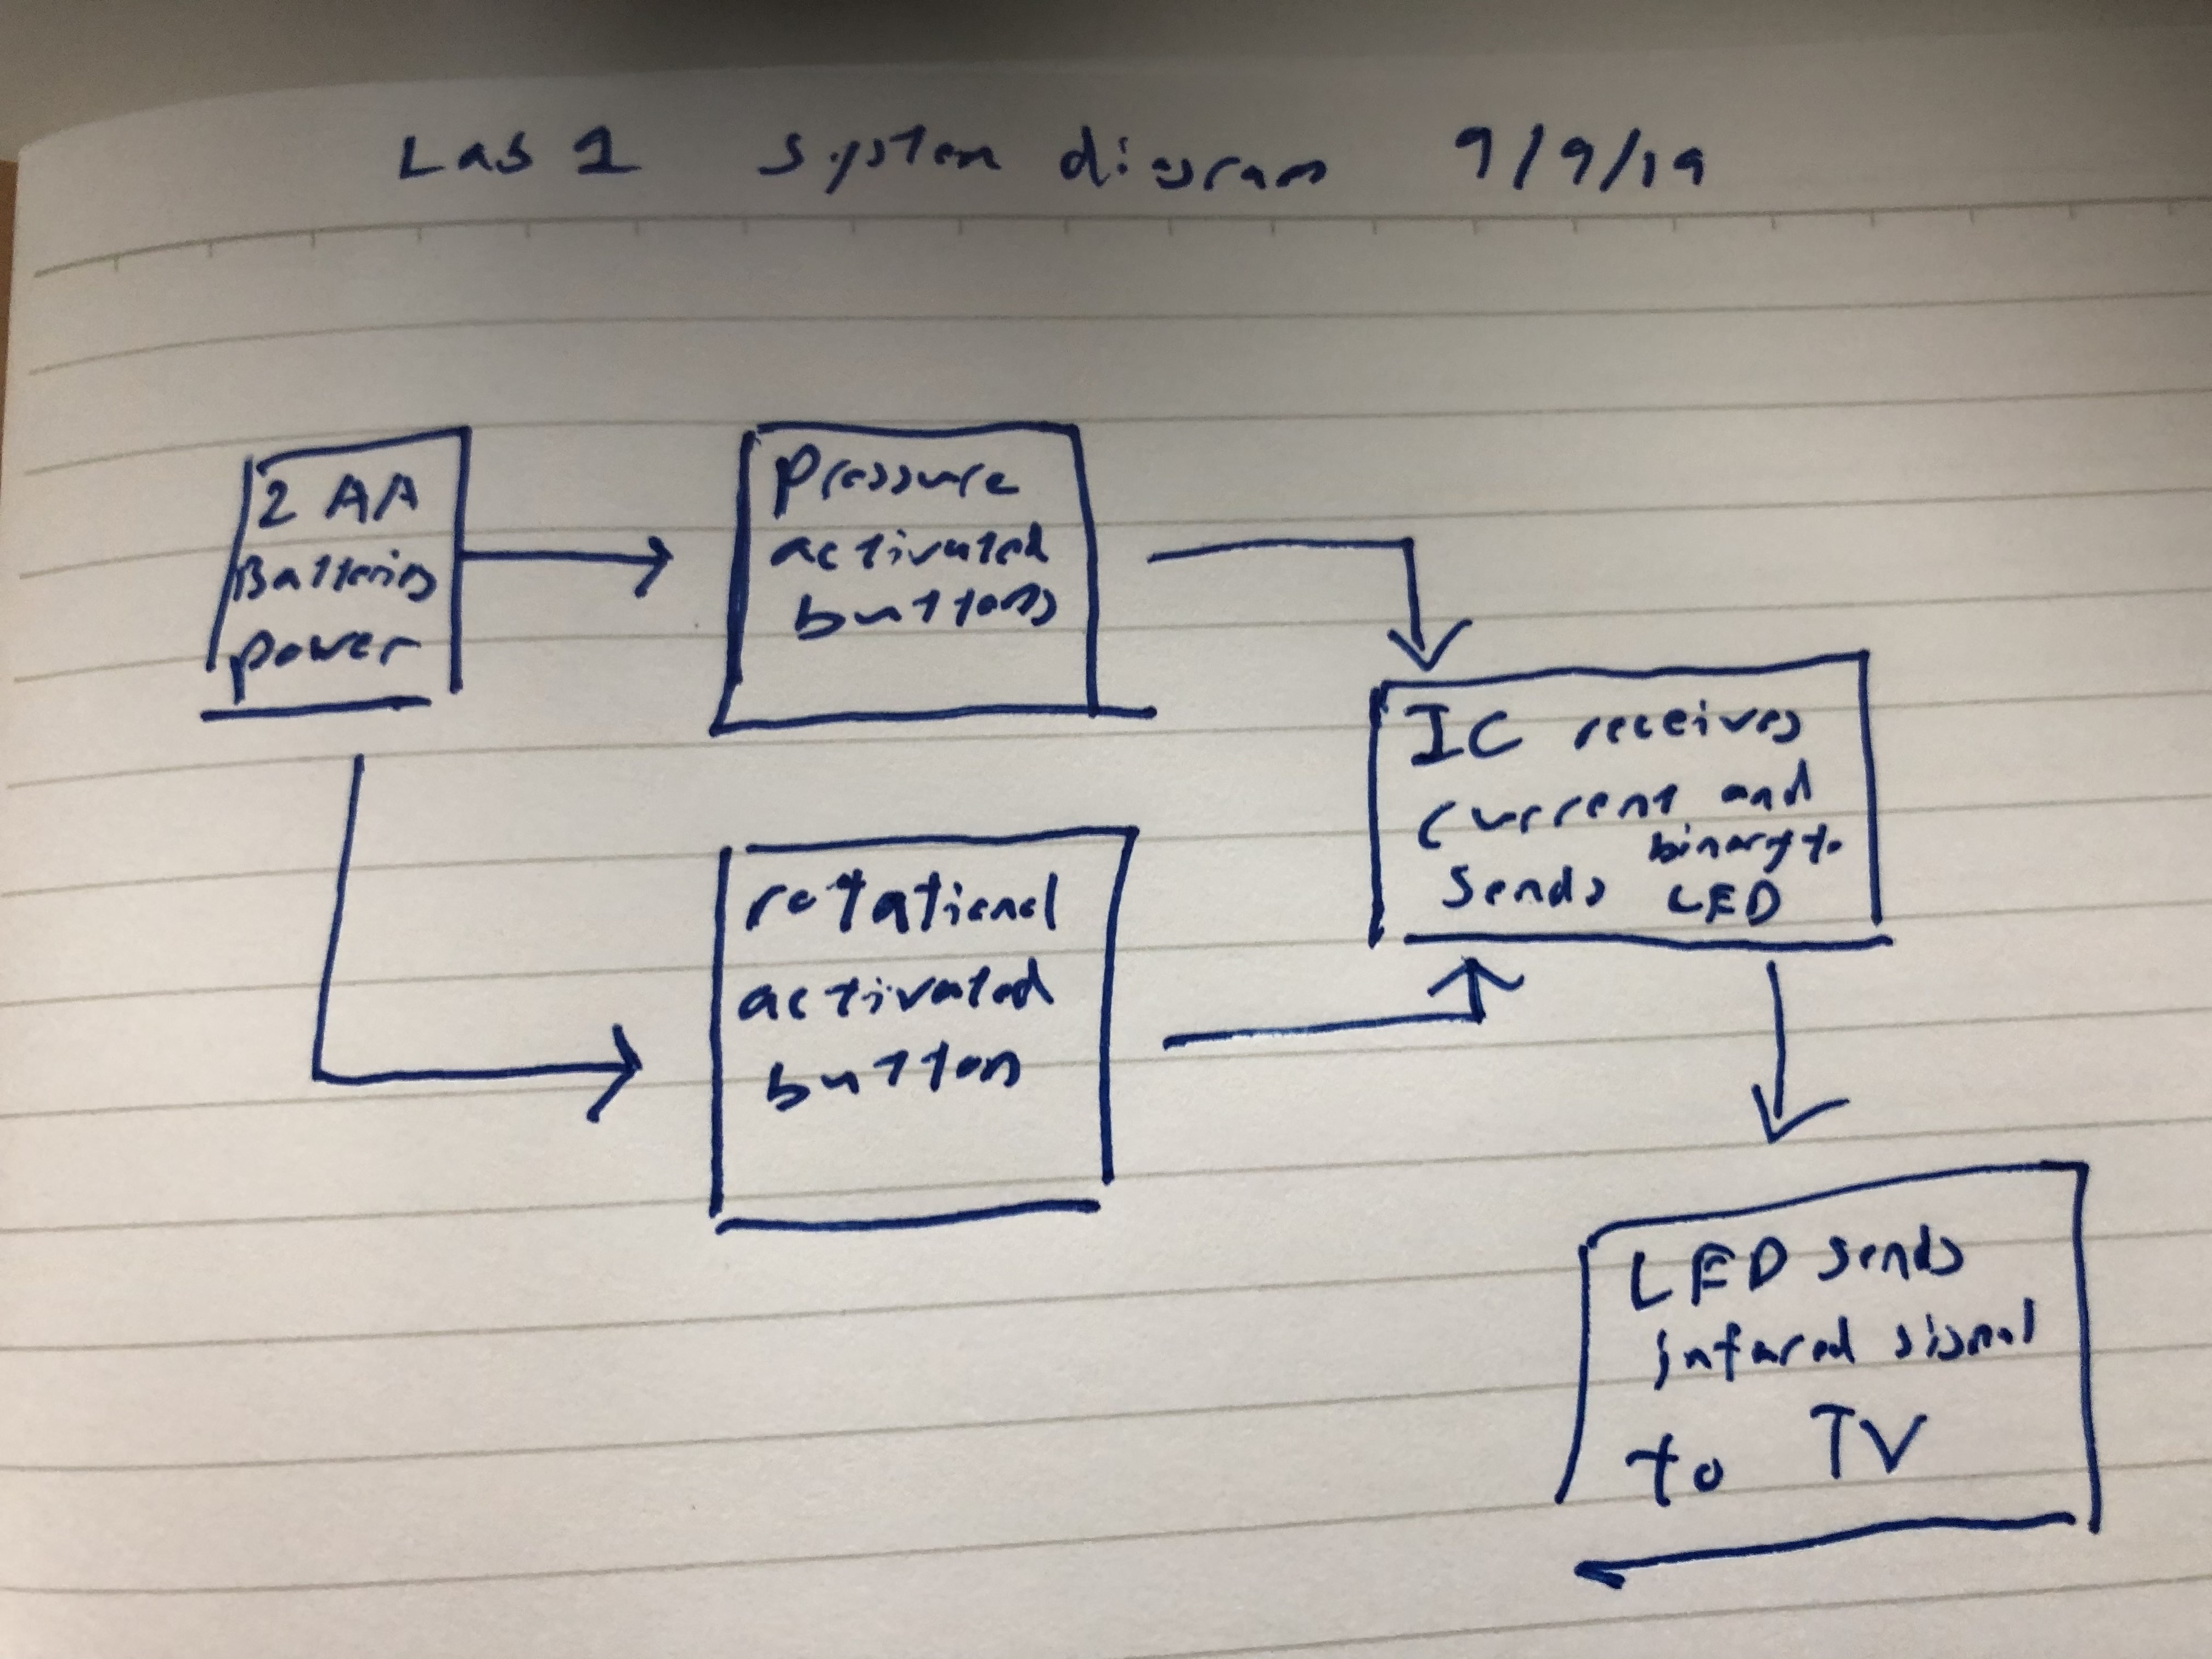 Lab 1 System diagram 9/9/19
2 AA
Batteries
power
Pressure
activated
buttons
rotational
activated
button
IC receives
current and
sends binary to
LED
LED sends
infared signal
to TV